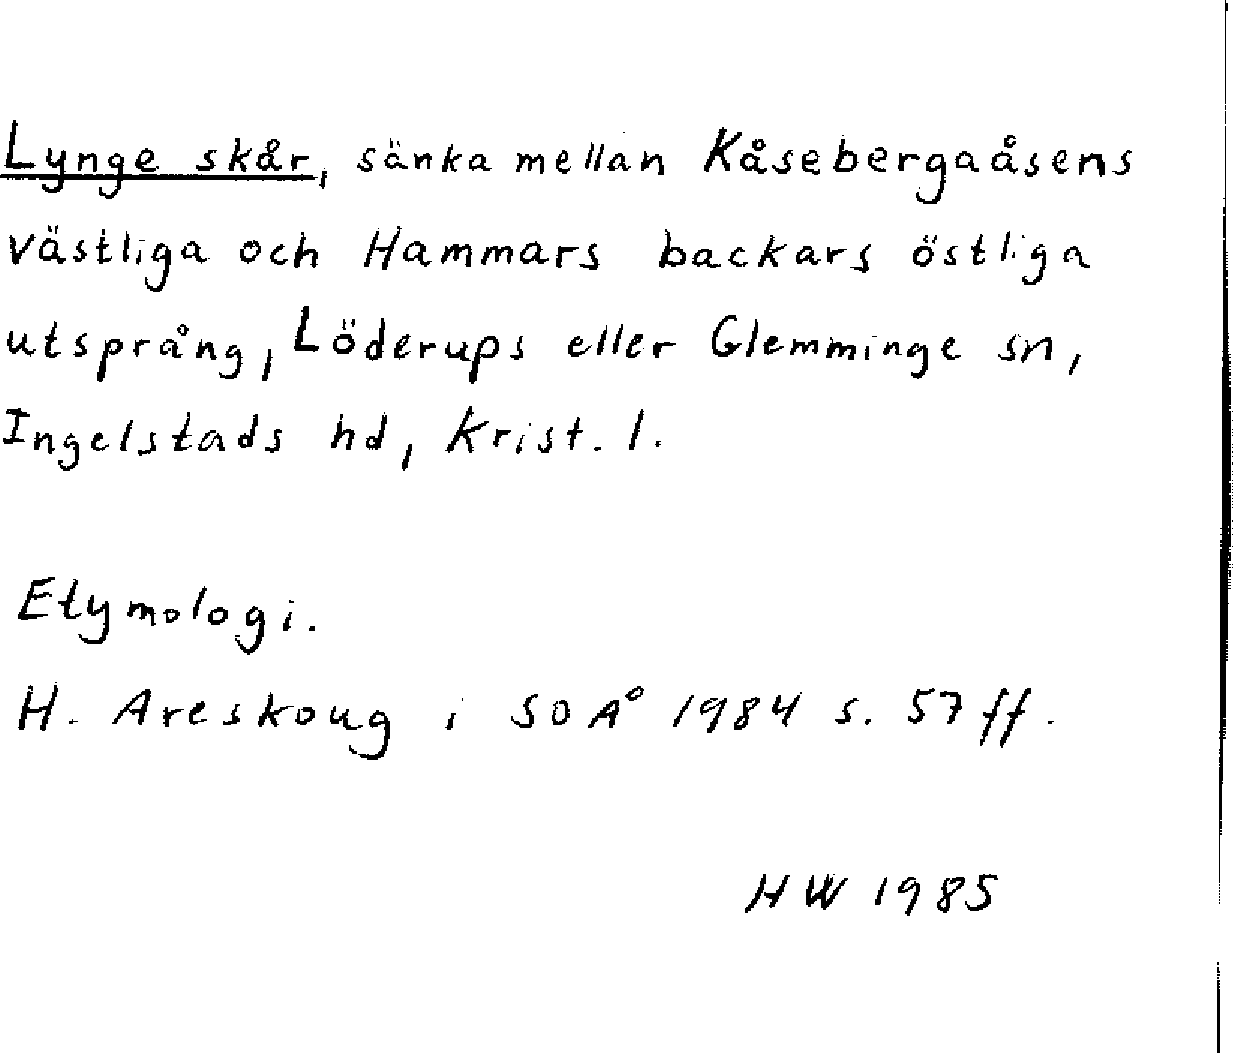 Lynge skår, sänka mellan Kåsebergaåsens
västliga och Hammars backars östliga
utsprång, Löderups eller Glemminge sn,
Ingelstads hd, Krist. l.
Etymologi.
H. Areskoug i SOÅ 1984 s. 57 ff.
HW 1985